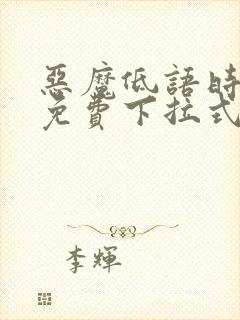 惡魔低語時
免費下拉式
李輝